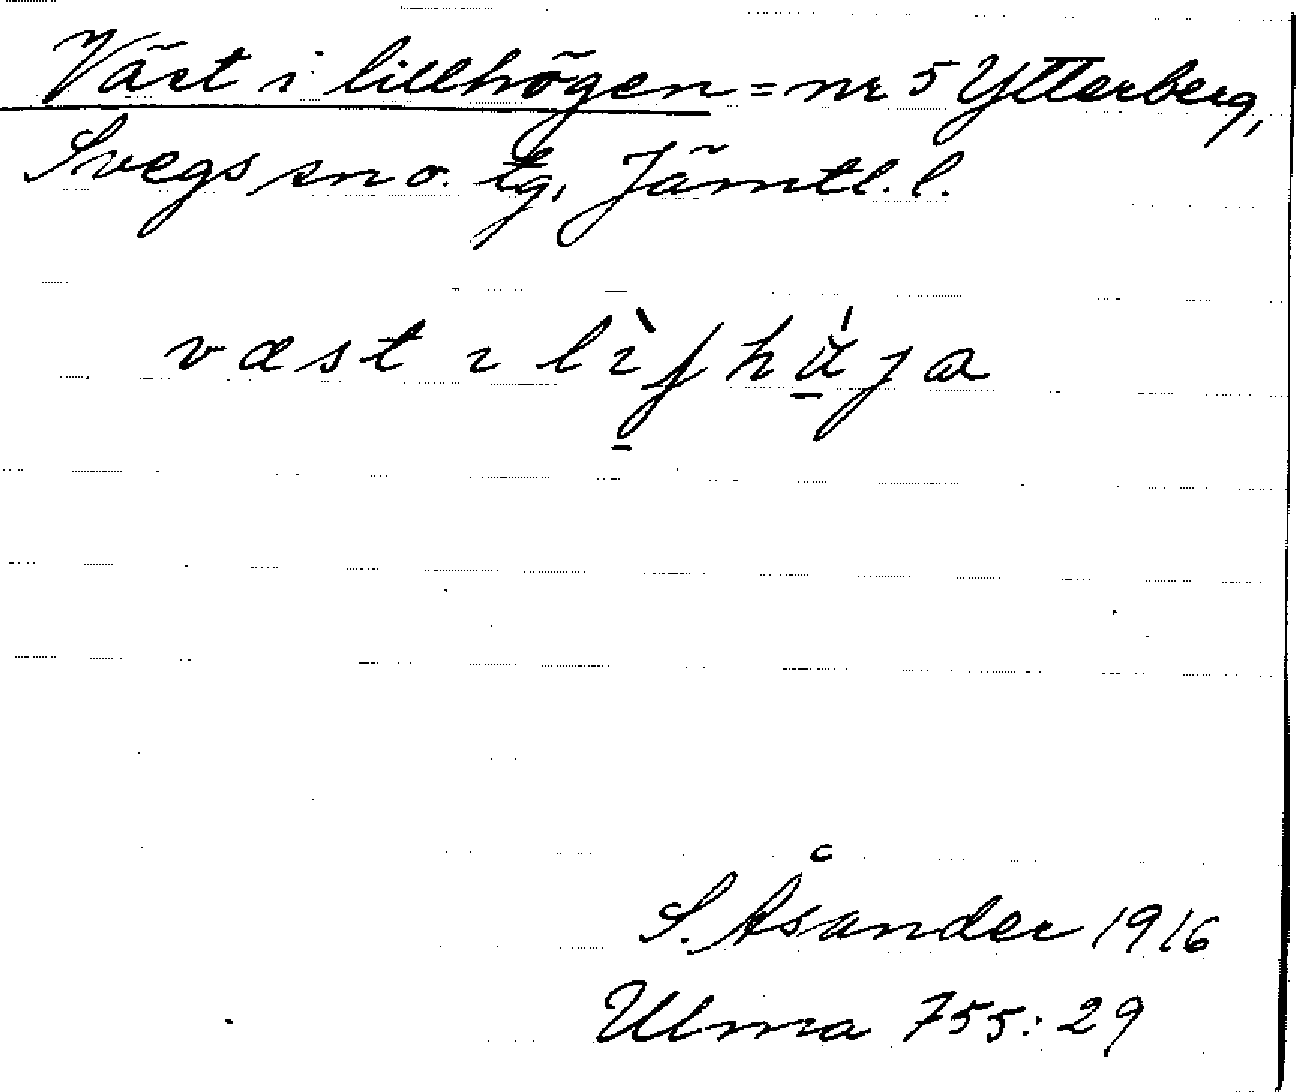 Väst i lillhögen = nr 5 Ytterberg,
Svegs sn o. tg, Jämtl. l.
væst ı
S. Åsander 1916
Ulma 755:29